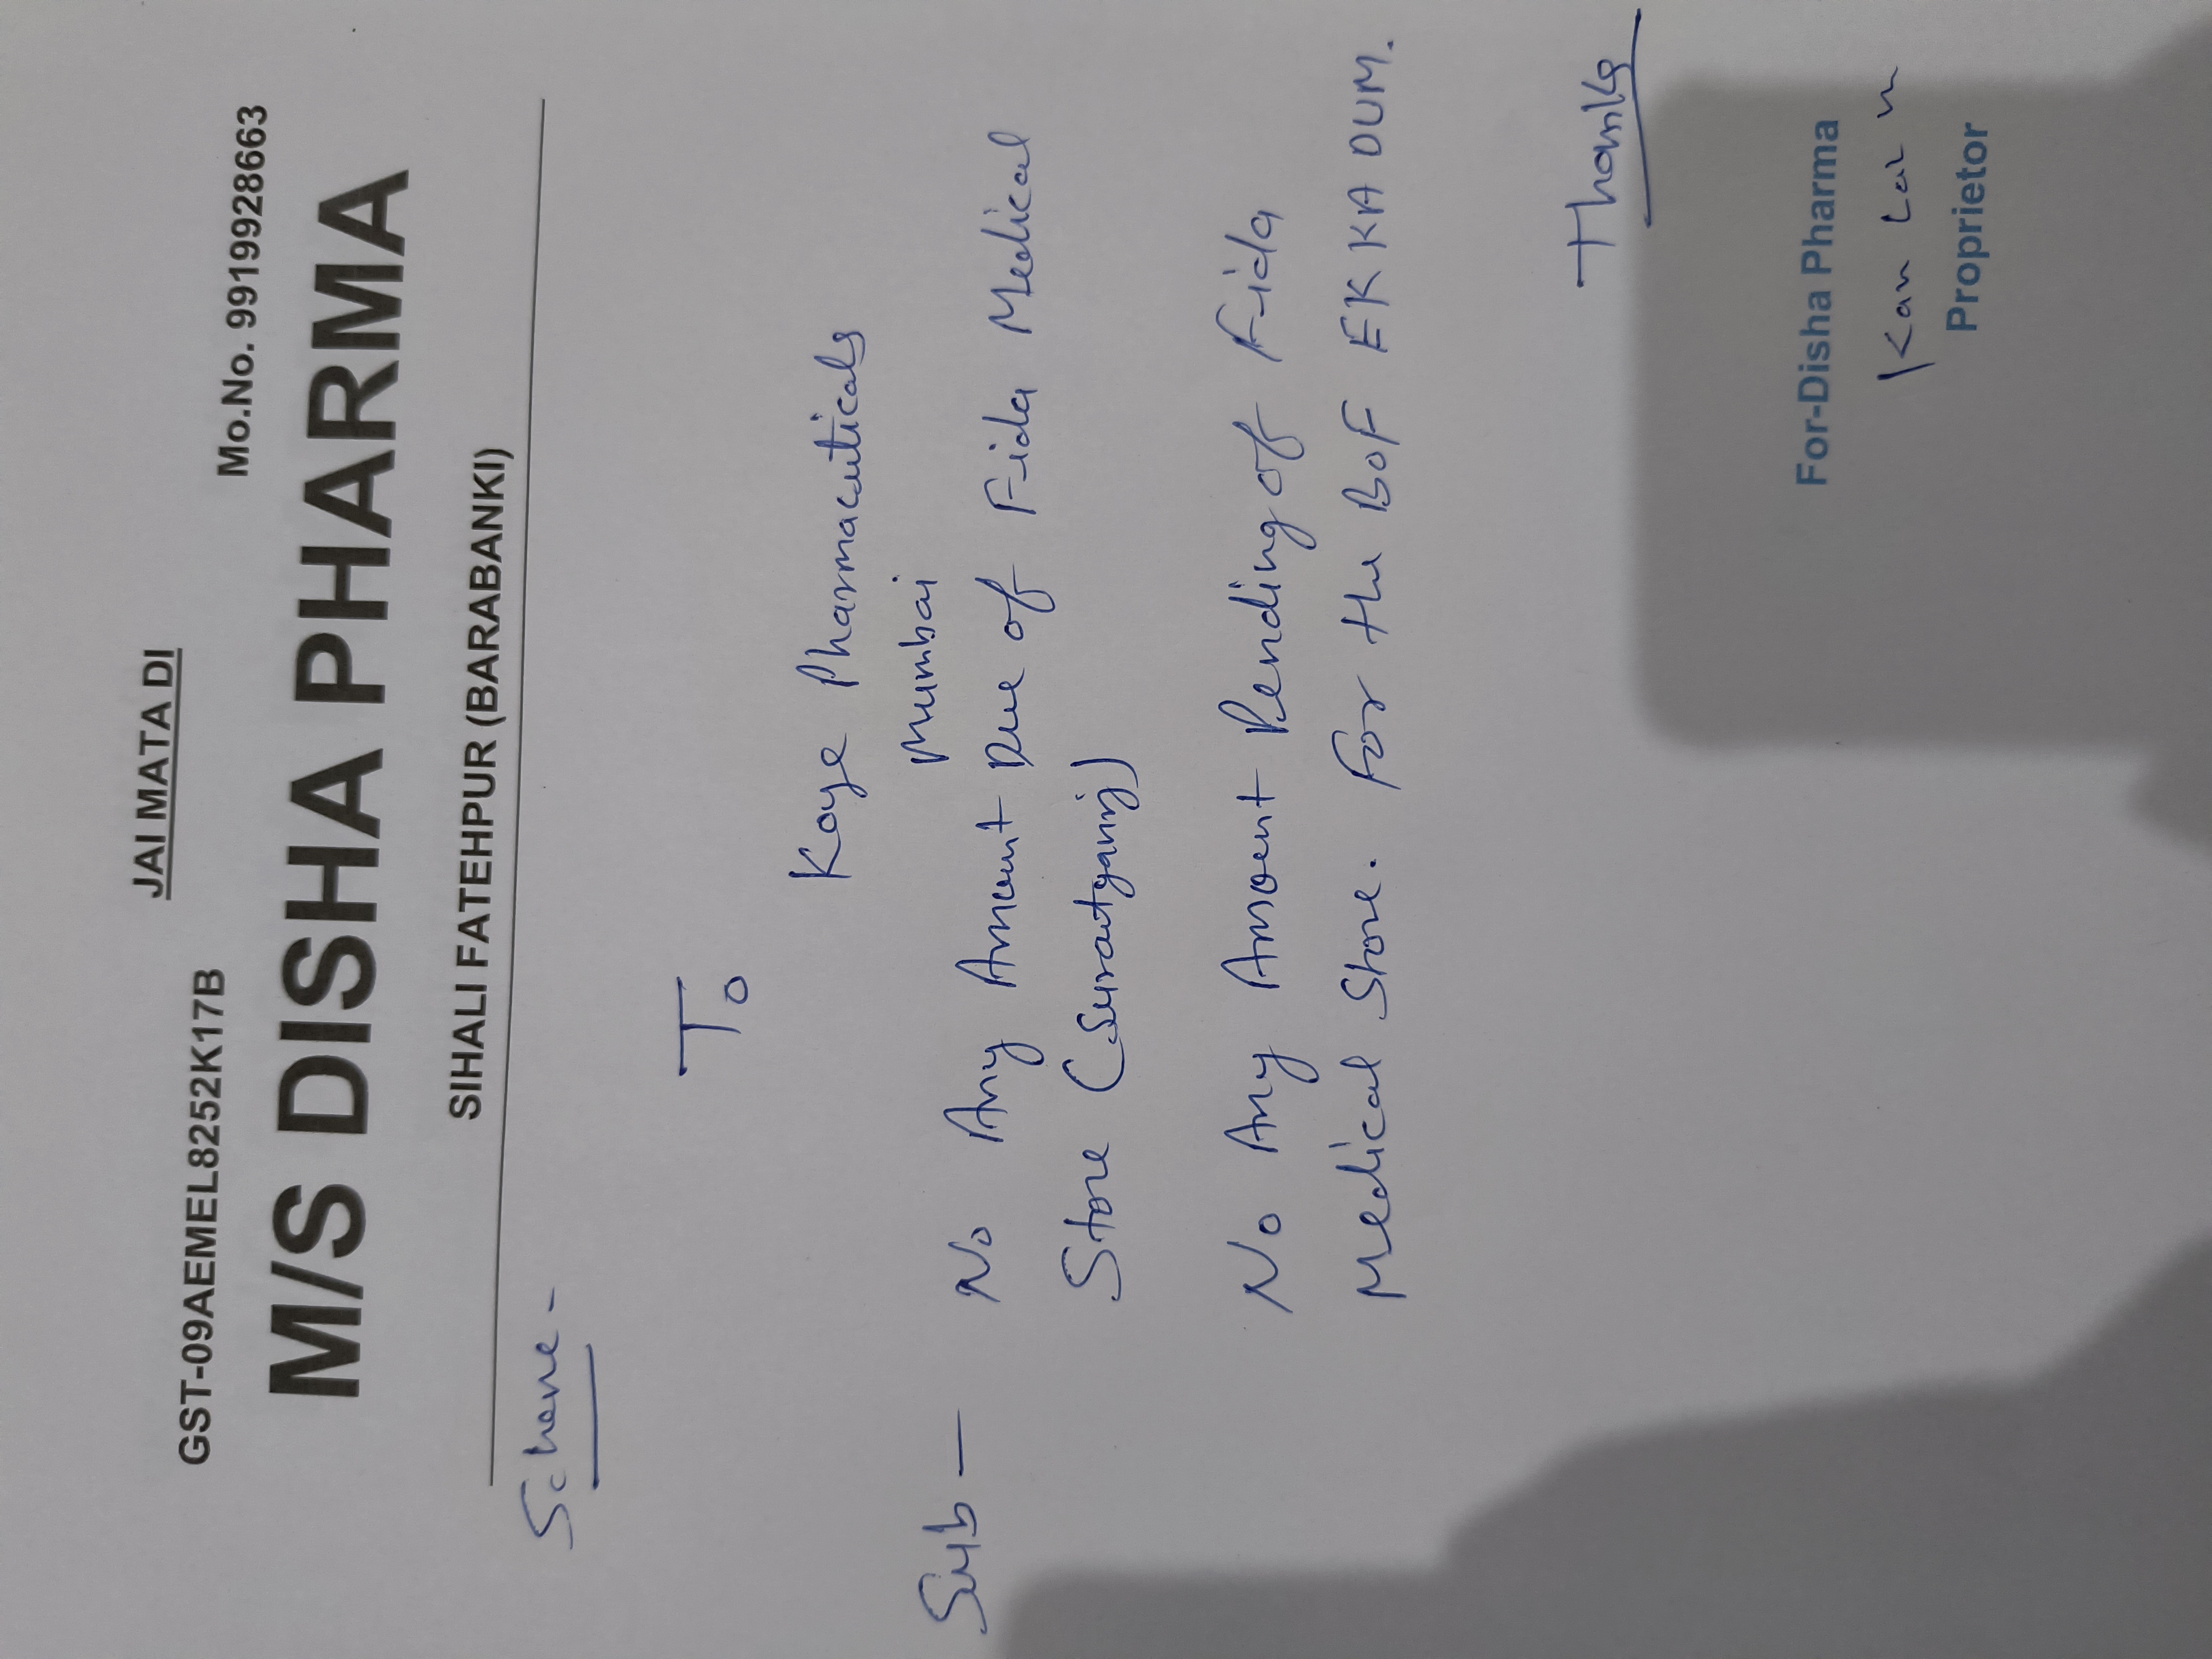 JAI MATA DI
GST-09AEMEL8252K17B Mo.No. 9919928663
M/S DISHA PHARMA
SIHALI FATEHPUR (BARABANKI)
Scheme -
To
Koye Pharmaceuticals
Mumbai
Sub - No Any Amount Due of Fida Medical
Store (Suratganj)
No Any Amoent Pending of Fida
Medical Store. For the BOF EKKA DUM.
Thanks
For-Disha Pharma
Proprietor